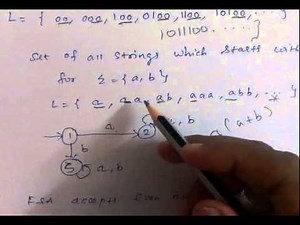 L = { 00, 000, 100, 0100, 1100, 10100,
1011100. ... }
Set of all strings which starts with
for Σ = {a, b}
L = { a, aa, ab, aaa, abb, ... }
1 a 2 a, b a(a+b)
b
3 a, b
FSA accepts